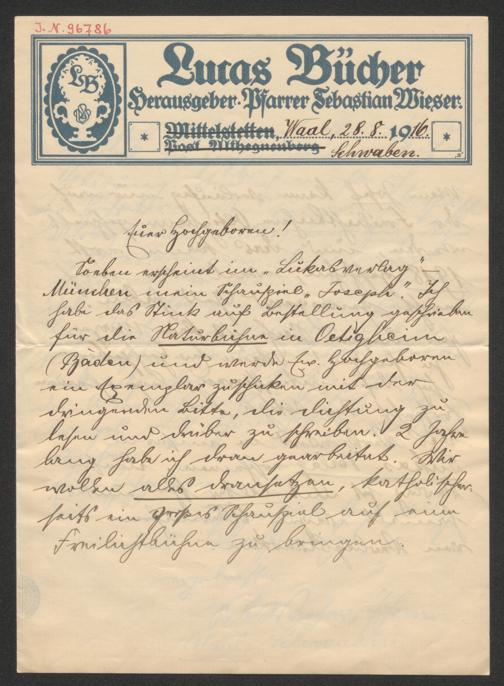 J. N. 96786
LB
Lucas Bücher
Herausgeber: Pfarrer Sebastian Wieser:
Mittelstetten, Waal, 28.8. 1916.
Post Althegnenberg Schwaben.
Euer Hochgeboren!
Soeben erscheint im „Lukasverlag" –
München mein Schauspiel „Joseph". Ich
habe das Stück auf Bestellung geschrieben
für die Naturbühne in Oetigheim
(Baden) und werde Ew. Hochgeboren
ein Exemplar zuschicken mit der
dringenden Bitte, die Dichtung zu
lesen und drüber zu schreiben. 2 Jahre
lang habe ich dran gearbeitet. Wir
wollen alles dransetzen, katholischer-
seits ein großes Schauspiel auf eine
Freilichtbühne zu bringen.